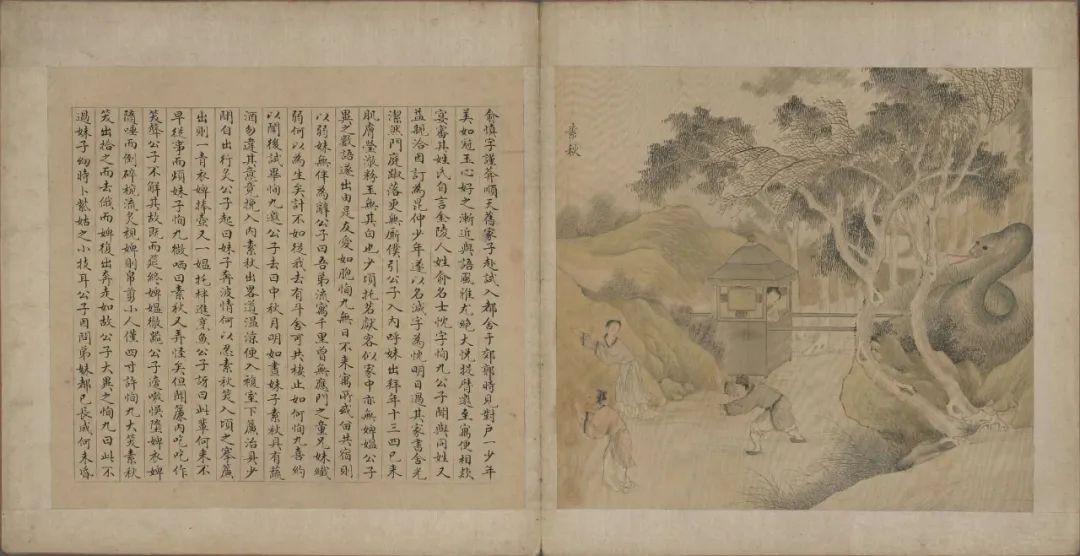 素秋
俞慎字謹菴順天舊家子赴試入都舍于郊郭時見對戶一少年
美如冠玉心好之漸近與語風雅尤絕大悅捉臂邀至寓便相款
宴審其姓氏自言金陵人姓俞名士忱字恂九公子聞與同姓又
益親洽因訂為昆仲少年遂以名減字為忱明日過其家書舍光
潔然門庭踧落更無廝僕引公子入內呼妹出拜年十三四已來
肌膚瑩澈粉玉無其白也少頃托茗獻客似家中亦無婢媼公子
異之數語遂出由是友愛如胞恂九無日不來寓所或留共宿則
以弱妹無伴為辭公子曰吾弟流寓千里曾無應門之童兄妹纖
弱何以為生矣計不如從我去有斗舍可共棲止如何恂九喜約
以闈後試畢恂九邀公子去曰中秋月明如晝妹子素秋具有蔬
酒勿違其意竟挽入內素秋出略道溫涼便入複室下簾治具少
間自出行炙公子起曰妹子奔波情何以忍素秋笑入頃之搴簾
出則一青衣婢捧壺又一媼托柈進烹魚公子訝曰此輩何來不
早從事而煩妹子恂九微哂曰素秋又弄怪矣但聞簾內吃吃作
笑聲公子不解其故既而筵終婢媼徹器公子適嗽悞墮婢衣婢
隨唾而倒碎碗流炙視婢則帛剪小人僅四寸許恂九大笑素秋
笑出拾之而去俄而婢復出奔走如故公子大異之恂九曰此不
過妹子幼時卜紫姑之小技耳公子因問弟妹都已長成何未婚